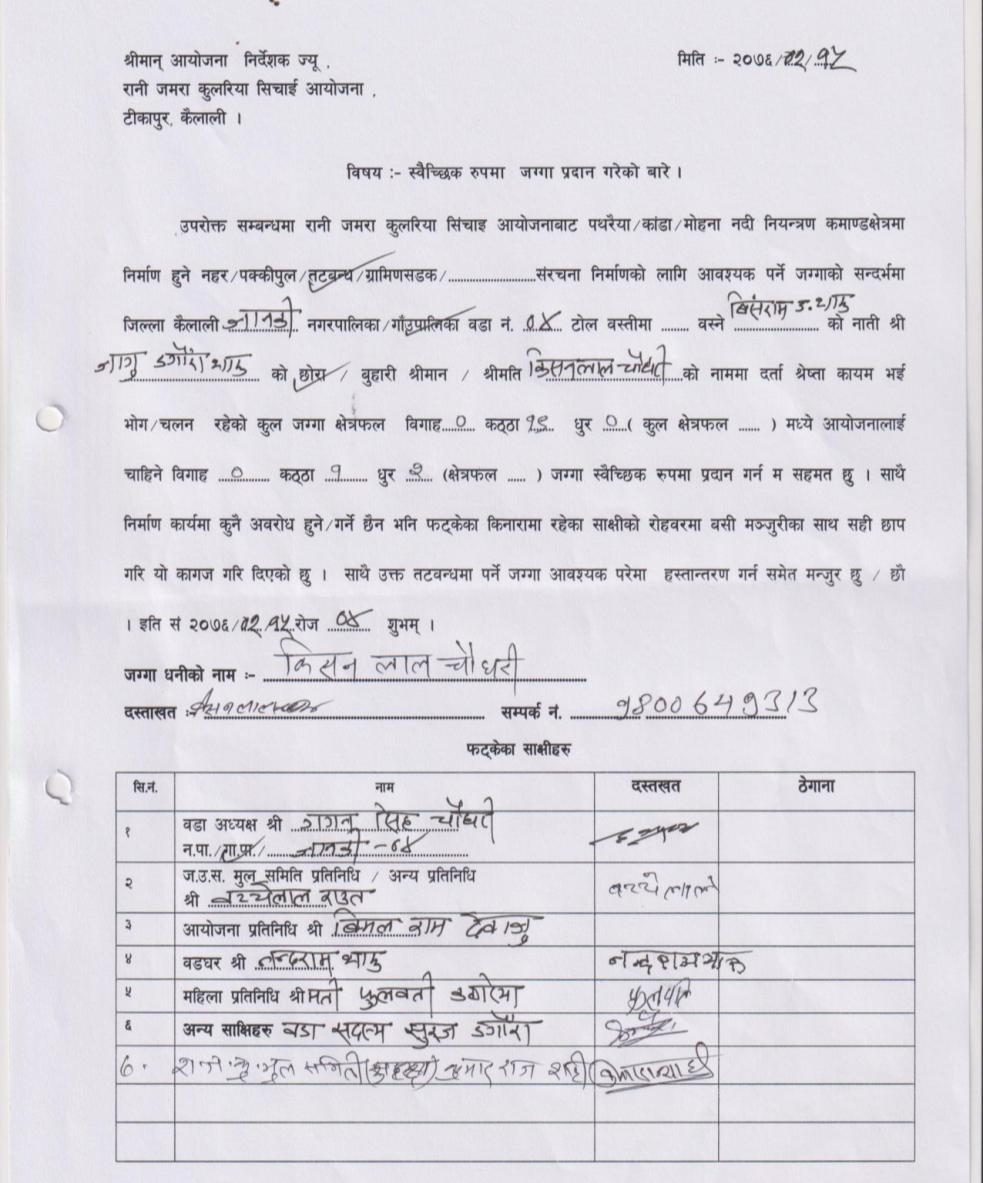 श्रीमान् आयोजना निर्देशक ज्यू ,
मिति :- २०७६/०२/१५
रानी जमरा कुलरिया सिचाई आयोजना ,
टीकापुर, कैलाली ।
विषय :- स्वैच्छिक रुपमा जग्गा प्रदान गरेको बारे ।
उपरोक्त सम्बन्धमा रानी जमरा कुलरिया सिंचाइ आयोजनाबाट पथरैया/कांडा/मोहना नदी नियन्त्रण कमाण्डक्षेत्रमा
निर्माण हुने नहर/पक्कीपुल/तटबन्ध/ग्रामिणसडक/....................संरचना निर्माणको लागि आवश्यक पर्ने जग्गाको सन्दर्भमा
जिल्ला कैलाली जानकी नगरपालिका/गाँउपालिका वडा नं. ०४ टोल वस्तीमा ........ वस्ने बिसराम ड.थारु को नाती श्री
जागु डगौरा थारु को छोरा / बुहारी श्रीमान / श्रीमति किसनलाल चौधरी को नाममा दर्ता श्रेष्ता कायम भई
भोग/चलन रहेको कुल जग्गा क्षेत्रफल विगाह ० कठ्ठा १९ धुर ० ( कुल क्षेत्रफल ...... ) मध्ये आयोजनालाई
चाहिने विगाह ० कठ्ठा १ धुर २ (क्षेत्रफल ...... ) जग्गा स्वैच्छिक रुपमा प्रदान गर्न म सहमत छु । साथै
निर्माण कार्यमा कुनै अवरोध हुने/गर्ने छैन भनि फट्केका किनारामा रहेका साक्षीको रोहवरमा बसी मञ्जुरीका साथ सही छाप
गरि यो कागज गरि दिएको छु । साथै उक्त तटवन्धमा पर्ने जग्गा आवश्यक परेमा हस्तान्तरण गर्न समेत मन्जुर छु / छौ
। इति सं २०७६/०२/१५ रोज ०४ शुभम् ।
जग्गा धनीको नाम :- किसन लाल चौधरी
दस्ताखत :- किसनलाल सम्पर्क नं. ९8००६49313
फट्केका साक्षीहरु
सि.नं. नाम दस्तखत ठेगाना
१ वडा अध्यक्ष श्री गगन सिंह चौधरी
न.पा./गा.पा./ जानकी -०४
२ ज.उ.स. मुल समिति प्रतिनिधि / अन्य प्रतिनिधि
श्री बच्चेलाल राउत बच्चेलाल
३ आयोजना प्रतिनिधि श्री बिमल राम देवाजु
४ वडघर श्री नन्दराम थारु नन्दराम थारु
५ महिला प्रतिनिधि श्रीमती फुलवती डगौरा फुलवति
६ अन्य साक्षिहरु वडा सदस्य सुरज डगौरा
७. रा.ज.कु. मुल समिति राज शाही